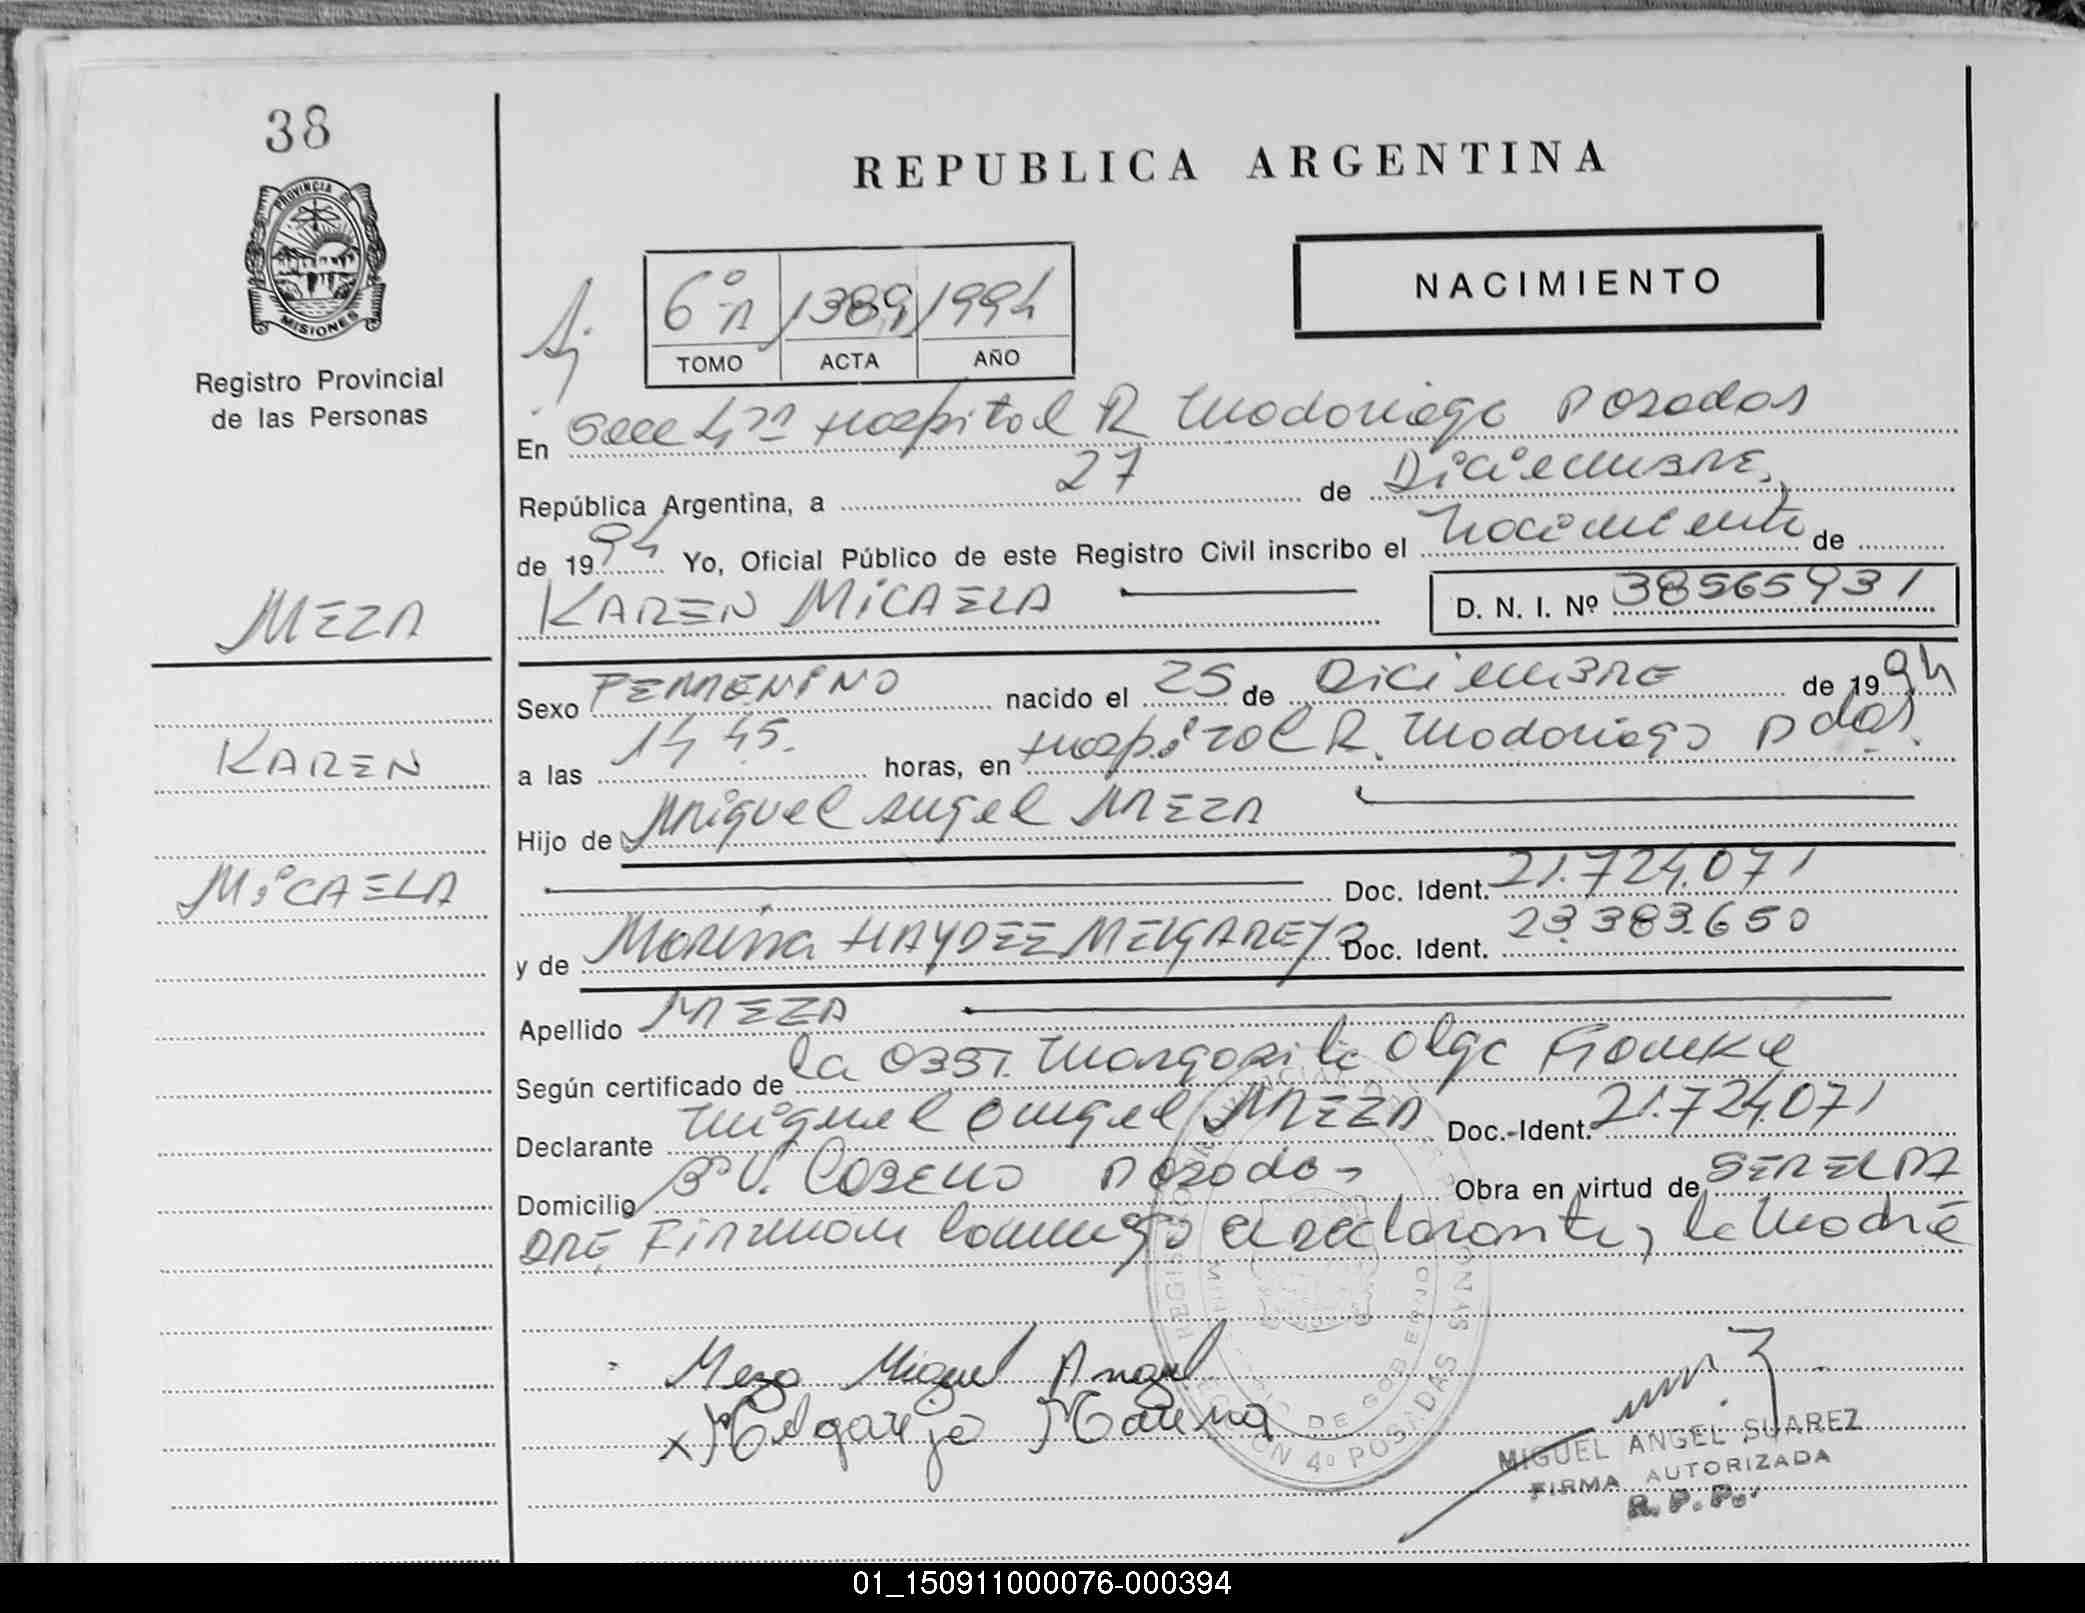 38
PROVINCIA DE
MISIONES
Registro Provincial
de las Personas
REPUBLICA ARGENTINA
NACIMIENTO
6º A 1389 1994
TOMO ACTA AÑO
En Secc 4ta Hospital R Madariaga Posadas
República Argentina, a 27 de Diciembre
de 1994 Yo, Oficial Público de este Registro Civil inscribo el Nacimiento de
KAREN MICAELA
D. N. I. Nº 38565931
MEZA
KAREN
MICAELA
Sexo FEMENINO nacido el 25 de Diciembre de 1994
a las 14 45. horas, en Hospital R. Madariaga Pdas.
Hijo de Miguel Angel MEZA
Doc. Ident. 21.724.071
y de Marina HAYDEE MELGAREJO Doc. Ident. 23.383.650
Apellido MEZA
Según certificado de la Obst. Margarita Olga
Declarante Miguel Angel MEZA Doc.-Ident. 21.724.071
Domicilio Bº V. Cabello Posadas Obra en virtud de SER EL PA
DRE, Firman conmigo el declarante y la Madre
Meza Miguel Angel
x Melgarejo Marina
SECCION 4º POSADAS
MIGUEL ANGEL SUAREZ
FIRMA AUTORIZADA
R. P. P.
01_150911000076-000394